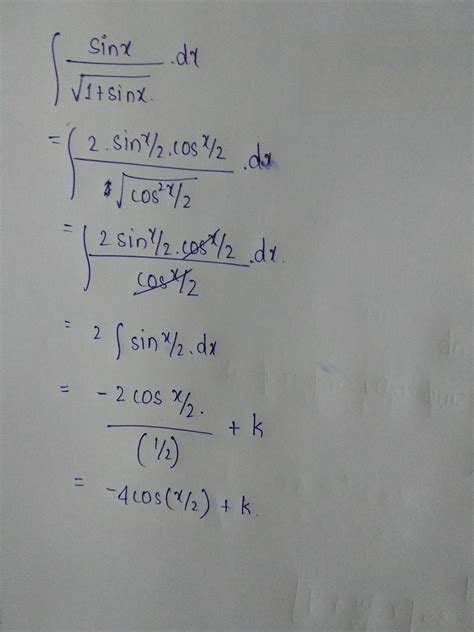 ∫ sinx / √1+sinx . dx
= ∫ 2.sin x/2 . cos x/2 / √cos² x/2 . dx
= ∫ 2 sin x/2 . cos x/2 / cos x/2 . dx.
= 2 ∫ sin x/2 . dx
= -2 cos x/2. / (1/2) + k
= -4cos(x/2) + k.